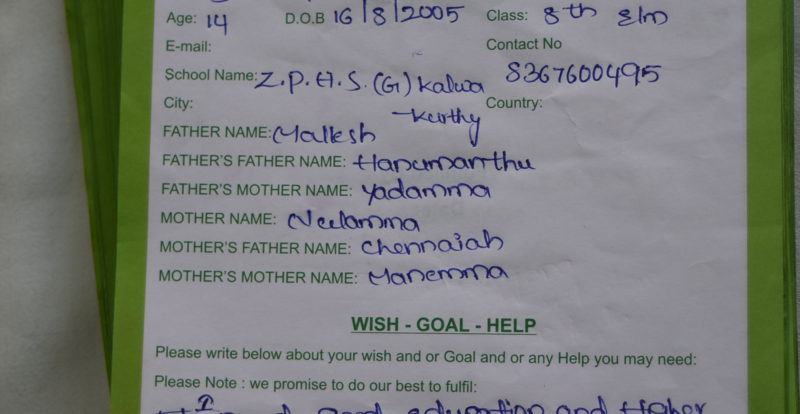 Age: 14 D.O.B 16/8/2005 Class: 8th E/m
E-mail: Contact No
School Name: Z.P.H.S. (G) Kalwa 8367600495
City: -Kurthy Country:
FATHER NAME: Mallesh
FATHER'S FATHER NAME: Hanumanthu
FATHER'S MOTHER NAME: Yadamma
MOTHER NAME: Neelamma
MOTHER'S FATHER NAME: Chennaiah
MOTHER'S MOTHER NAME: Manemma
WISH - GOAL - HELP
Please write below about your wish and or Goal and or any Help you may need:
Please Note : we promise to do our best to fulfil:
I good education and Higher